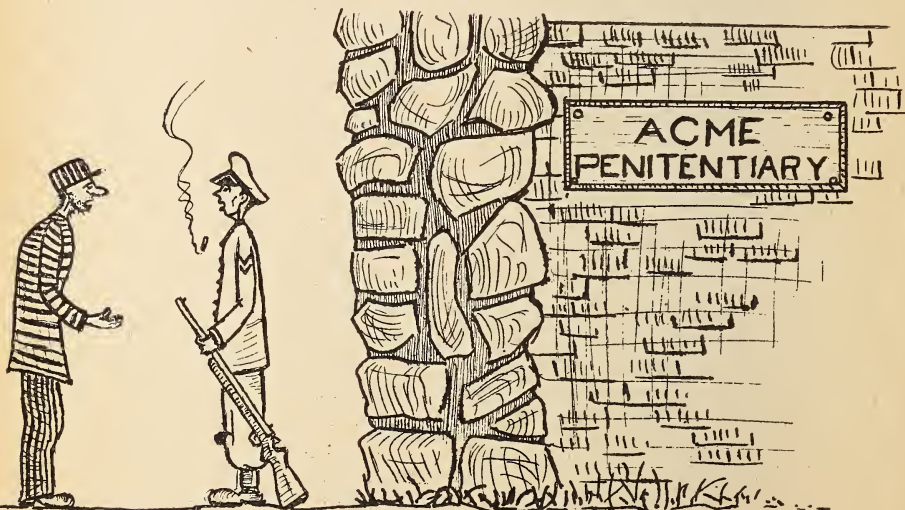 ACME
PENITENTIARY